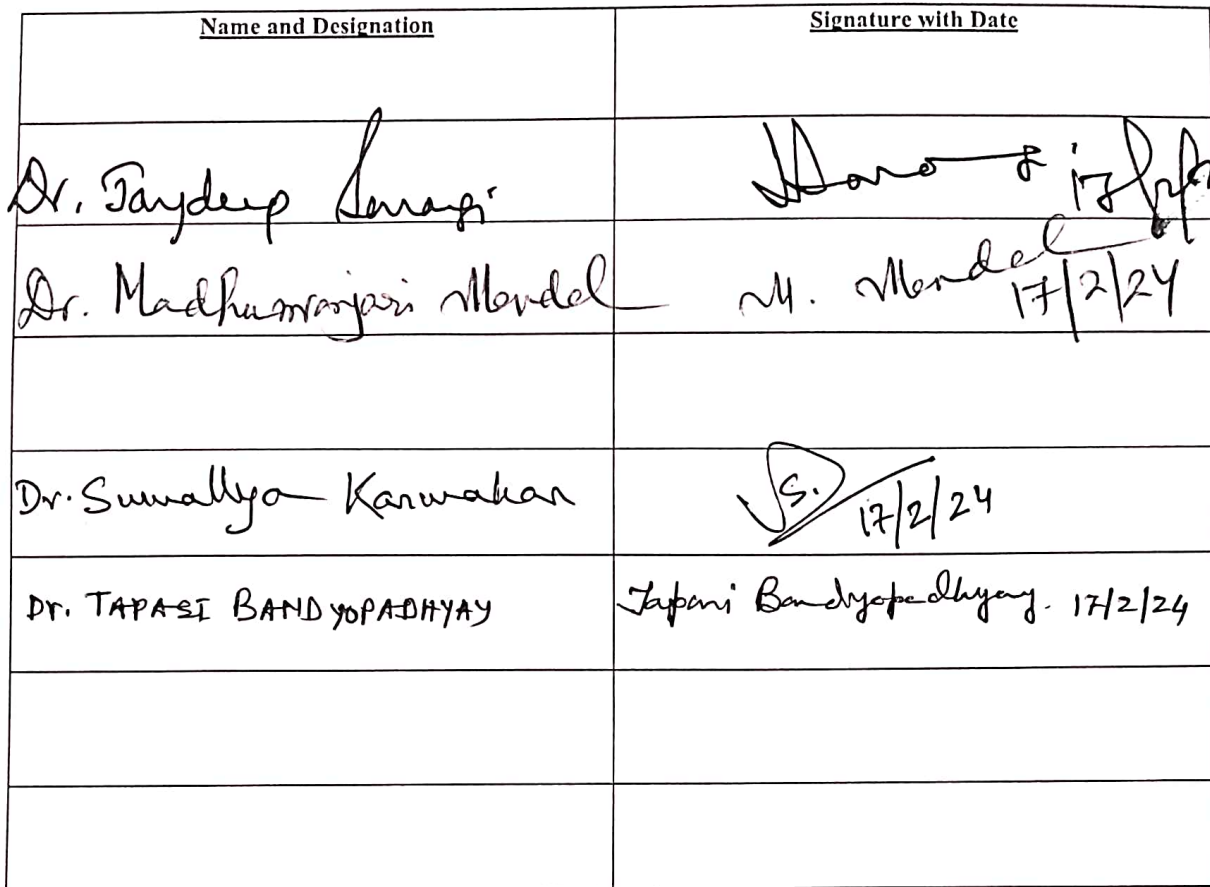 Name and Designation Signature with Date
Dr. Jaydeep Sarangi
Dr. Madhumanjari Mandal M. Mandal 17/2/24
Dr. Sumallya Karmakar S. 17/2/24
Dr. TAPASI BANDYOPADHYAY Tapasi Bandyopadhyay. 17/2/24